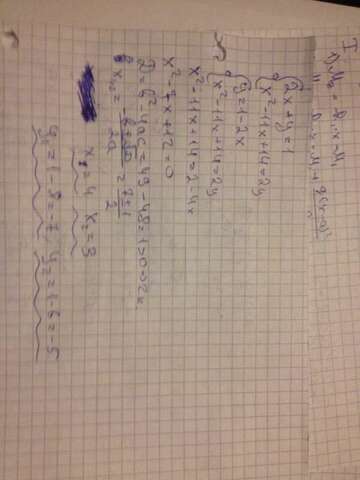 I
{2x+y=1
x²-11x+14=2y
{y=1-2x
x²-11x+14=2y
x²-11x+14=2-4x
x²-7x+12=0
D=b²-4ac=49-48=1>0=>2к.
x₁,₂ = (-b±√D)/2a = (7±1)/2
x₁=4 x₂=3
y₁=1-8=-7 y₂=1-6=-5